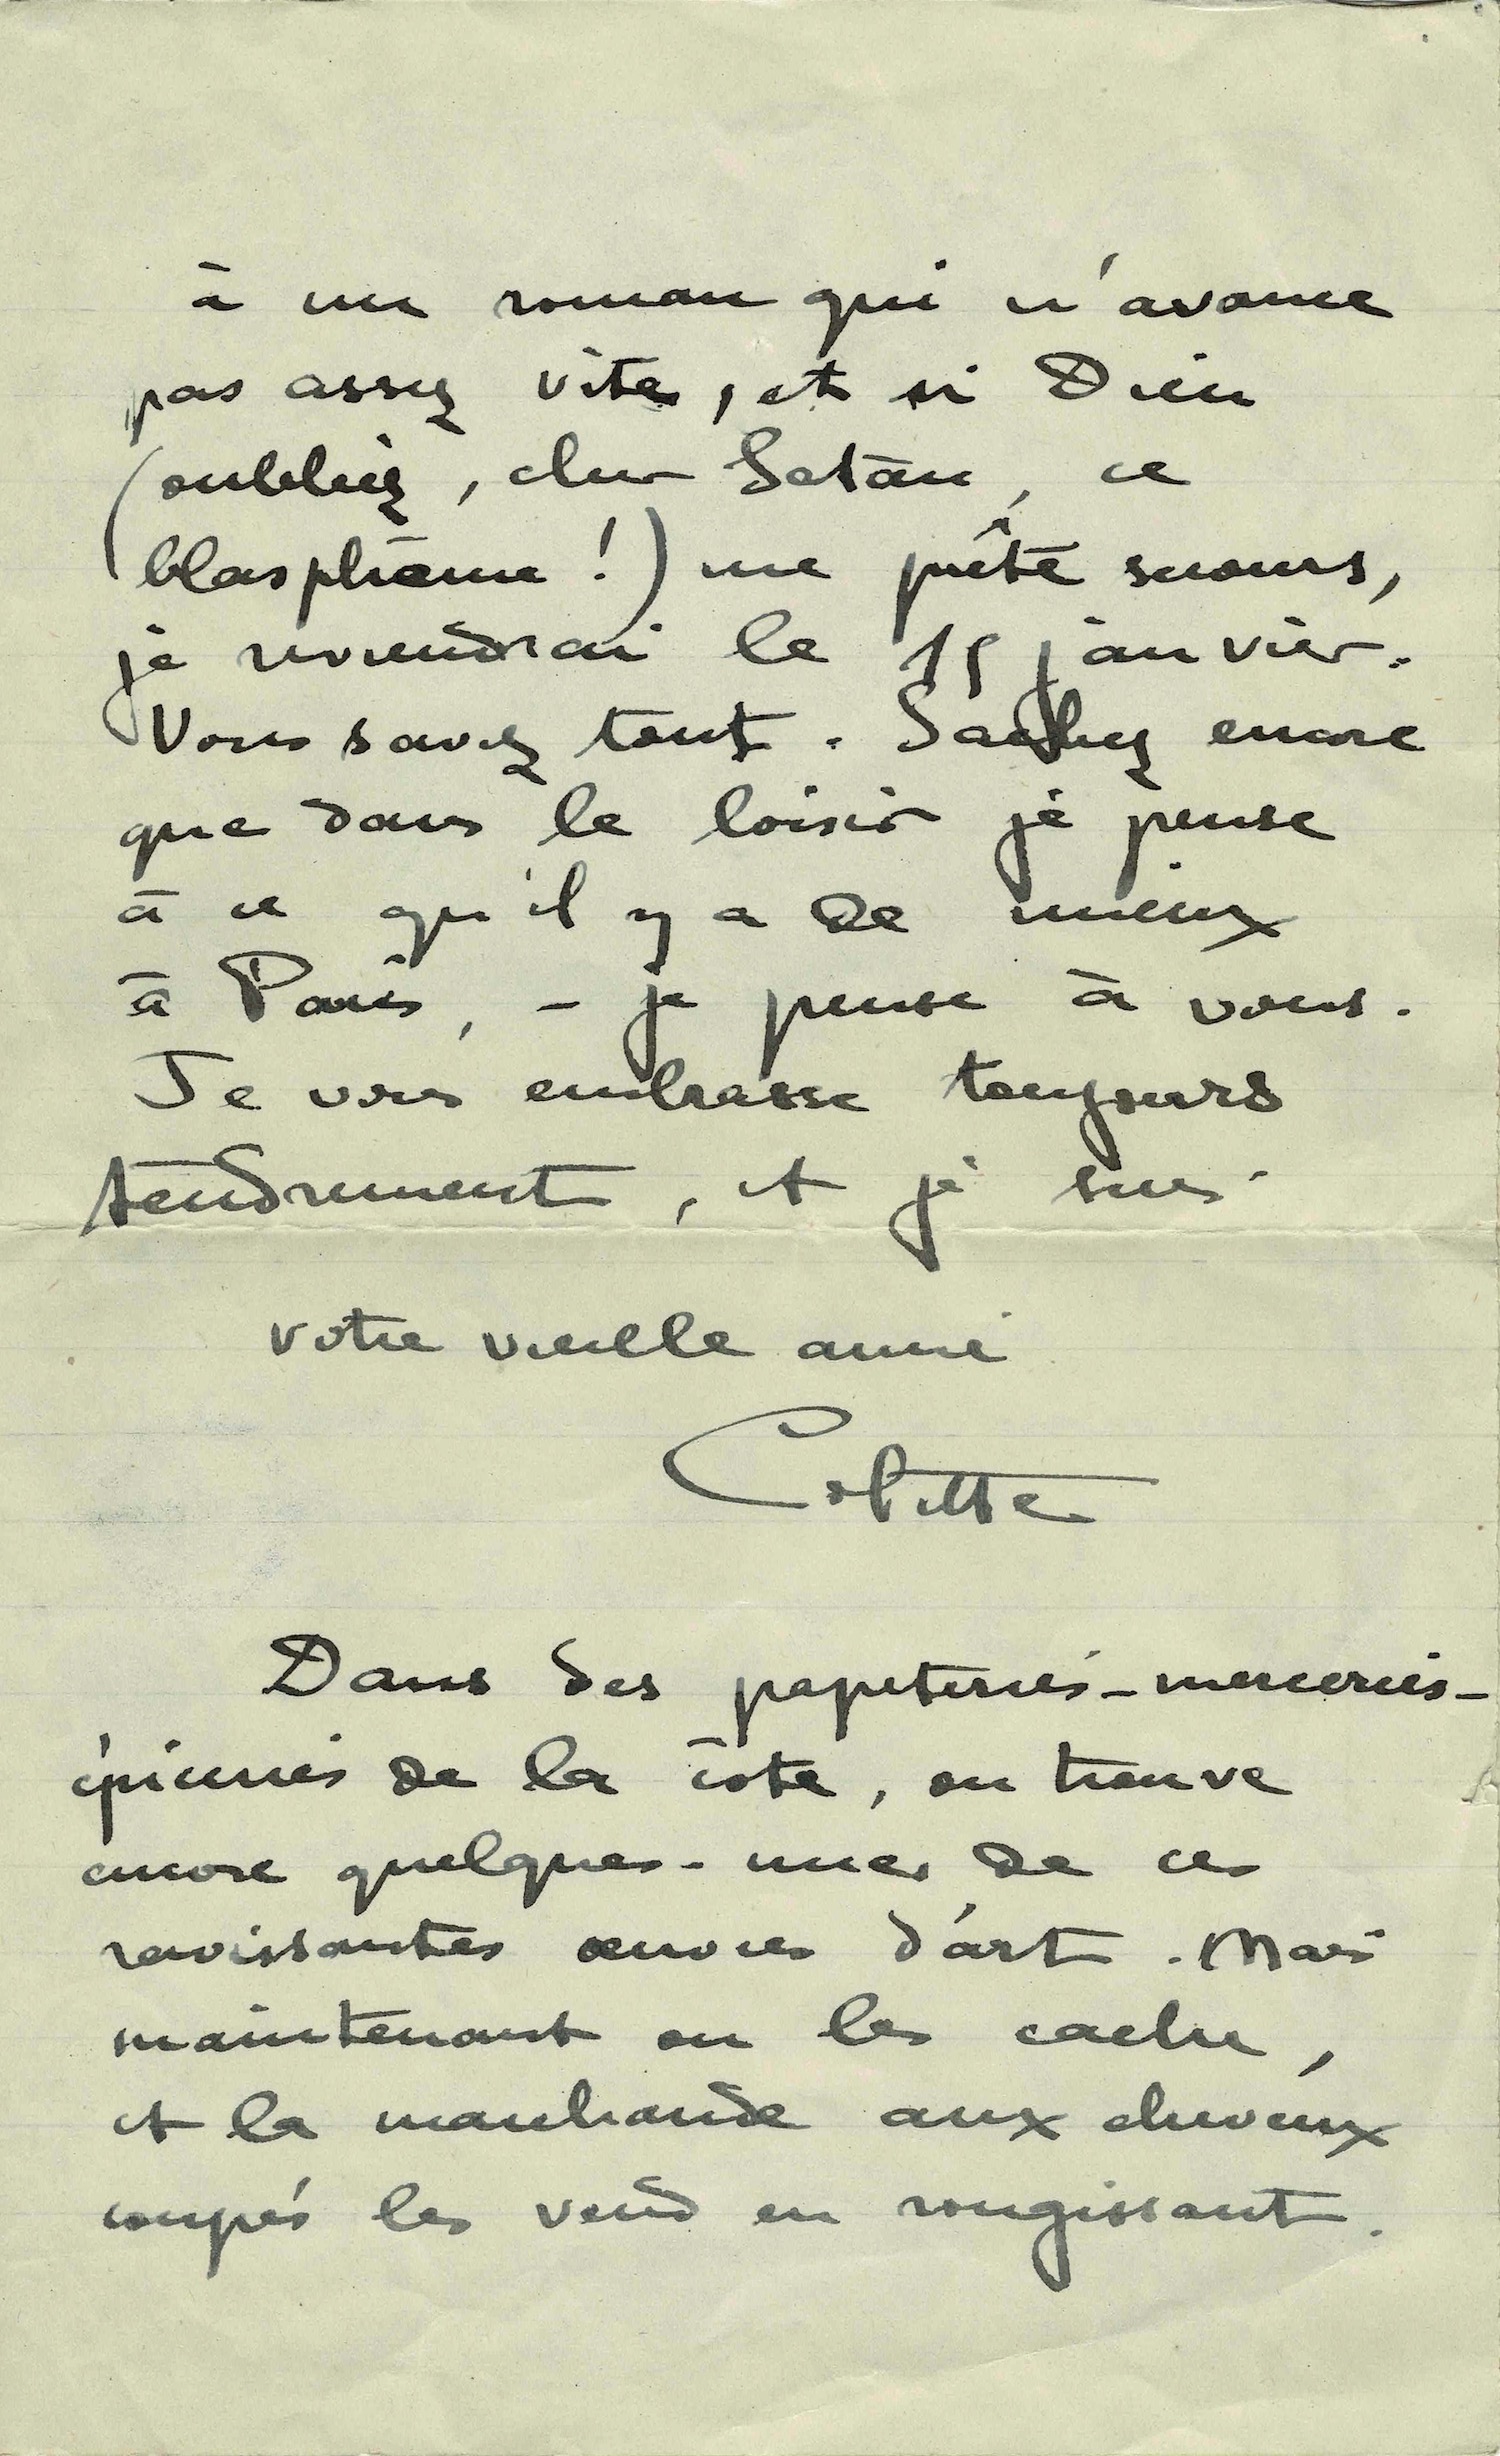 à un roman qui n'avance
pas assez vite, et si Dieu
(oubliez, cher Satan, ce
blasphème !) me prête secours,
je reviendrai le 15 janvier.
Vous savez tout. Sachez encore
que dans le loisir je pense
à ce qu'il y a de mieux
à Paris, - je pense à vous.
Je vous embrasse toujours
tendrement, et je suis
votre vieille amie
Colette
Dans des papeteries-merceries-
épiceries de la côte, on trouve
encore quelques-unes de ces
ravissantes œuvres d'art. Mais
maintenant on les cache,
et la marchande aux cheveux
coupés les vend en rougissant.